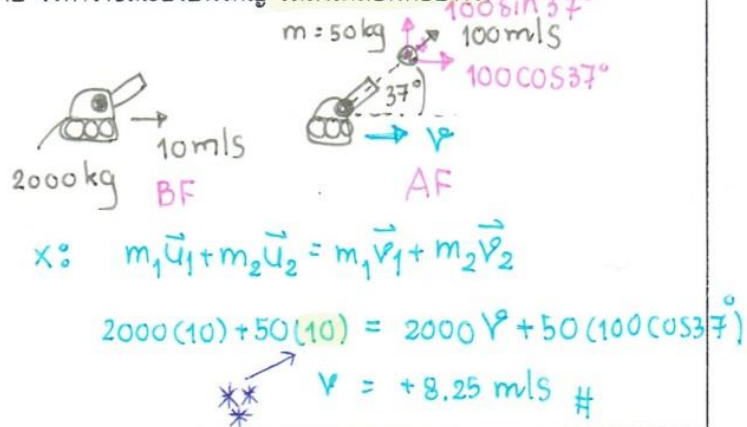 100 sin 37°
m = 50 kg
100 m/s
100 cos 37°
37°
10 m/s
v
2000 kg
BF
AF
x: m₁u⃗₁ + m₂u⃗₂ = m₁v⃗₁ + m₂v⃗₂
2000(10) + 50(10) = 2000 v + 50(100 cos 37°)
v = +8.25 m/s #